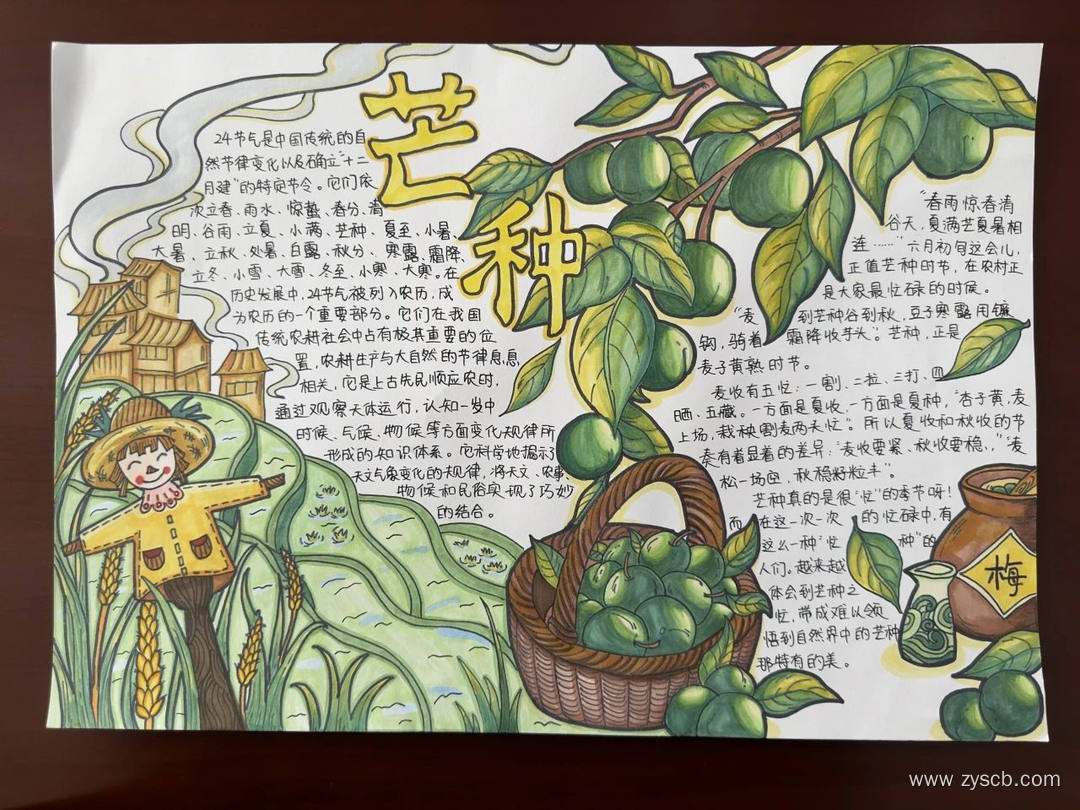 芒种
24节气是中国传统的自
然节律变化以及确立“十二
月建”的特定节令。它们依
次立春、雨水、惊蛰、春分、清
明、谷雨、立夏、小满、芒种、夏至、小暑、
大暑、立秋、处暑、白露、秋分、寒露、霜降、
立冬、小雪、大雪、冬至、小寒、大寒。在
历史发展中,24节气被列入农历,成
为农历的一个重要部分。它们在我国
传统农耕社会中占有极其重要的位
置,农耕生产与大自然的节律息息
相关,它是上古先民顺应农时,
通过观察天体运行,认知一岁中
时候、气候、物候等方面变化规律所
形成的知识体系。它科学地揭示了
天文气象变化的规律,将天文、农事、
物候和民俗实现了巧妙
的结合。
“春雨惊春清
谷天,夏满芒夏暑相
连……”六月初旬这会儿,
正值芒种时节,在农村正
是大家最忙碌的时候。
“麦到芒种谷到秋,豆子寒露用镰
钩,骑着霜降收芋头”。芒种,正是
麦子黄熟时节。
麦收有五忙:一割、二拉、三打、四
晒、五藏。一方面是夏收,一方面是夏种,“杏子黄,麦
上场,栽秧割麦两天忙”。所以夏收和秋收的节
奏有着显着的差异:“麦收要紧、秋收要稳,”“麦
松一场空,秋稳籽粒丰”。
芒种真的是很“忙”的季节呀!
而在这一次一次的忙碌中,有
这么一种“忙种”的
人们,越来越
体会到芒种之
忙,带成难以领
悟到自然界中的芒种
那特有的美。
梅
www.zyscb.com